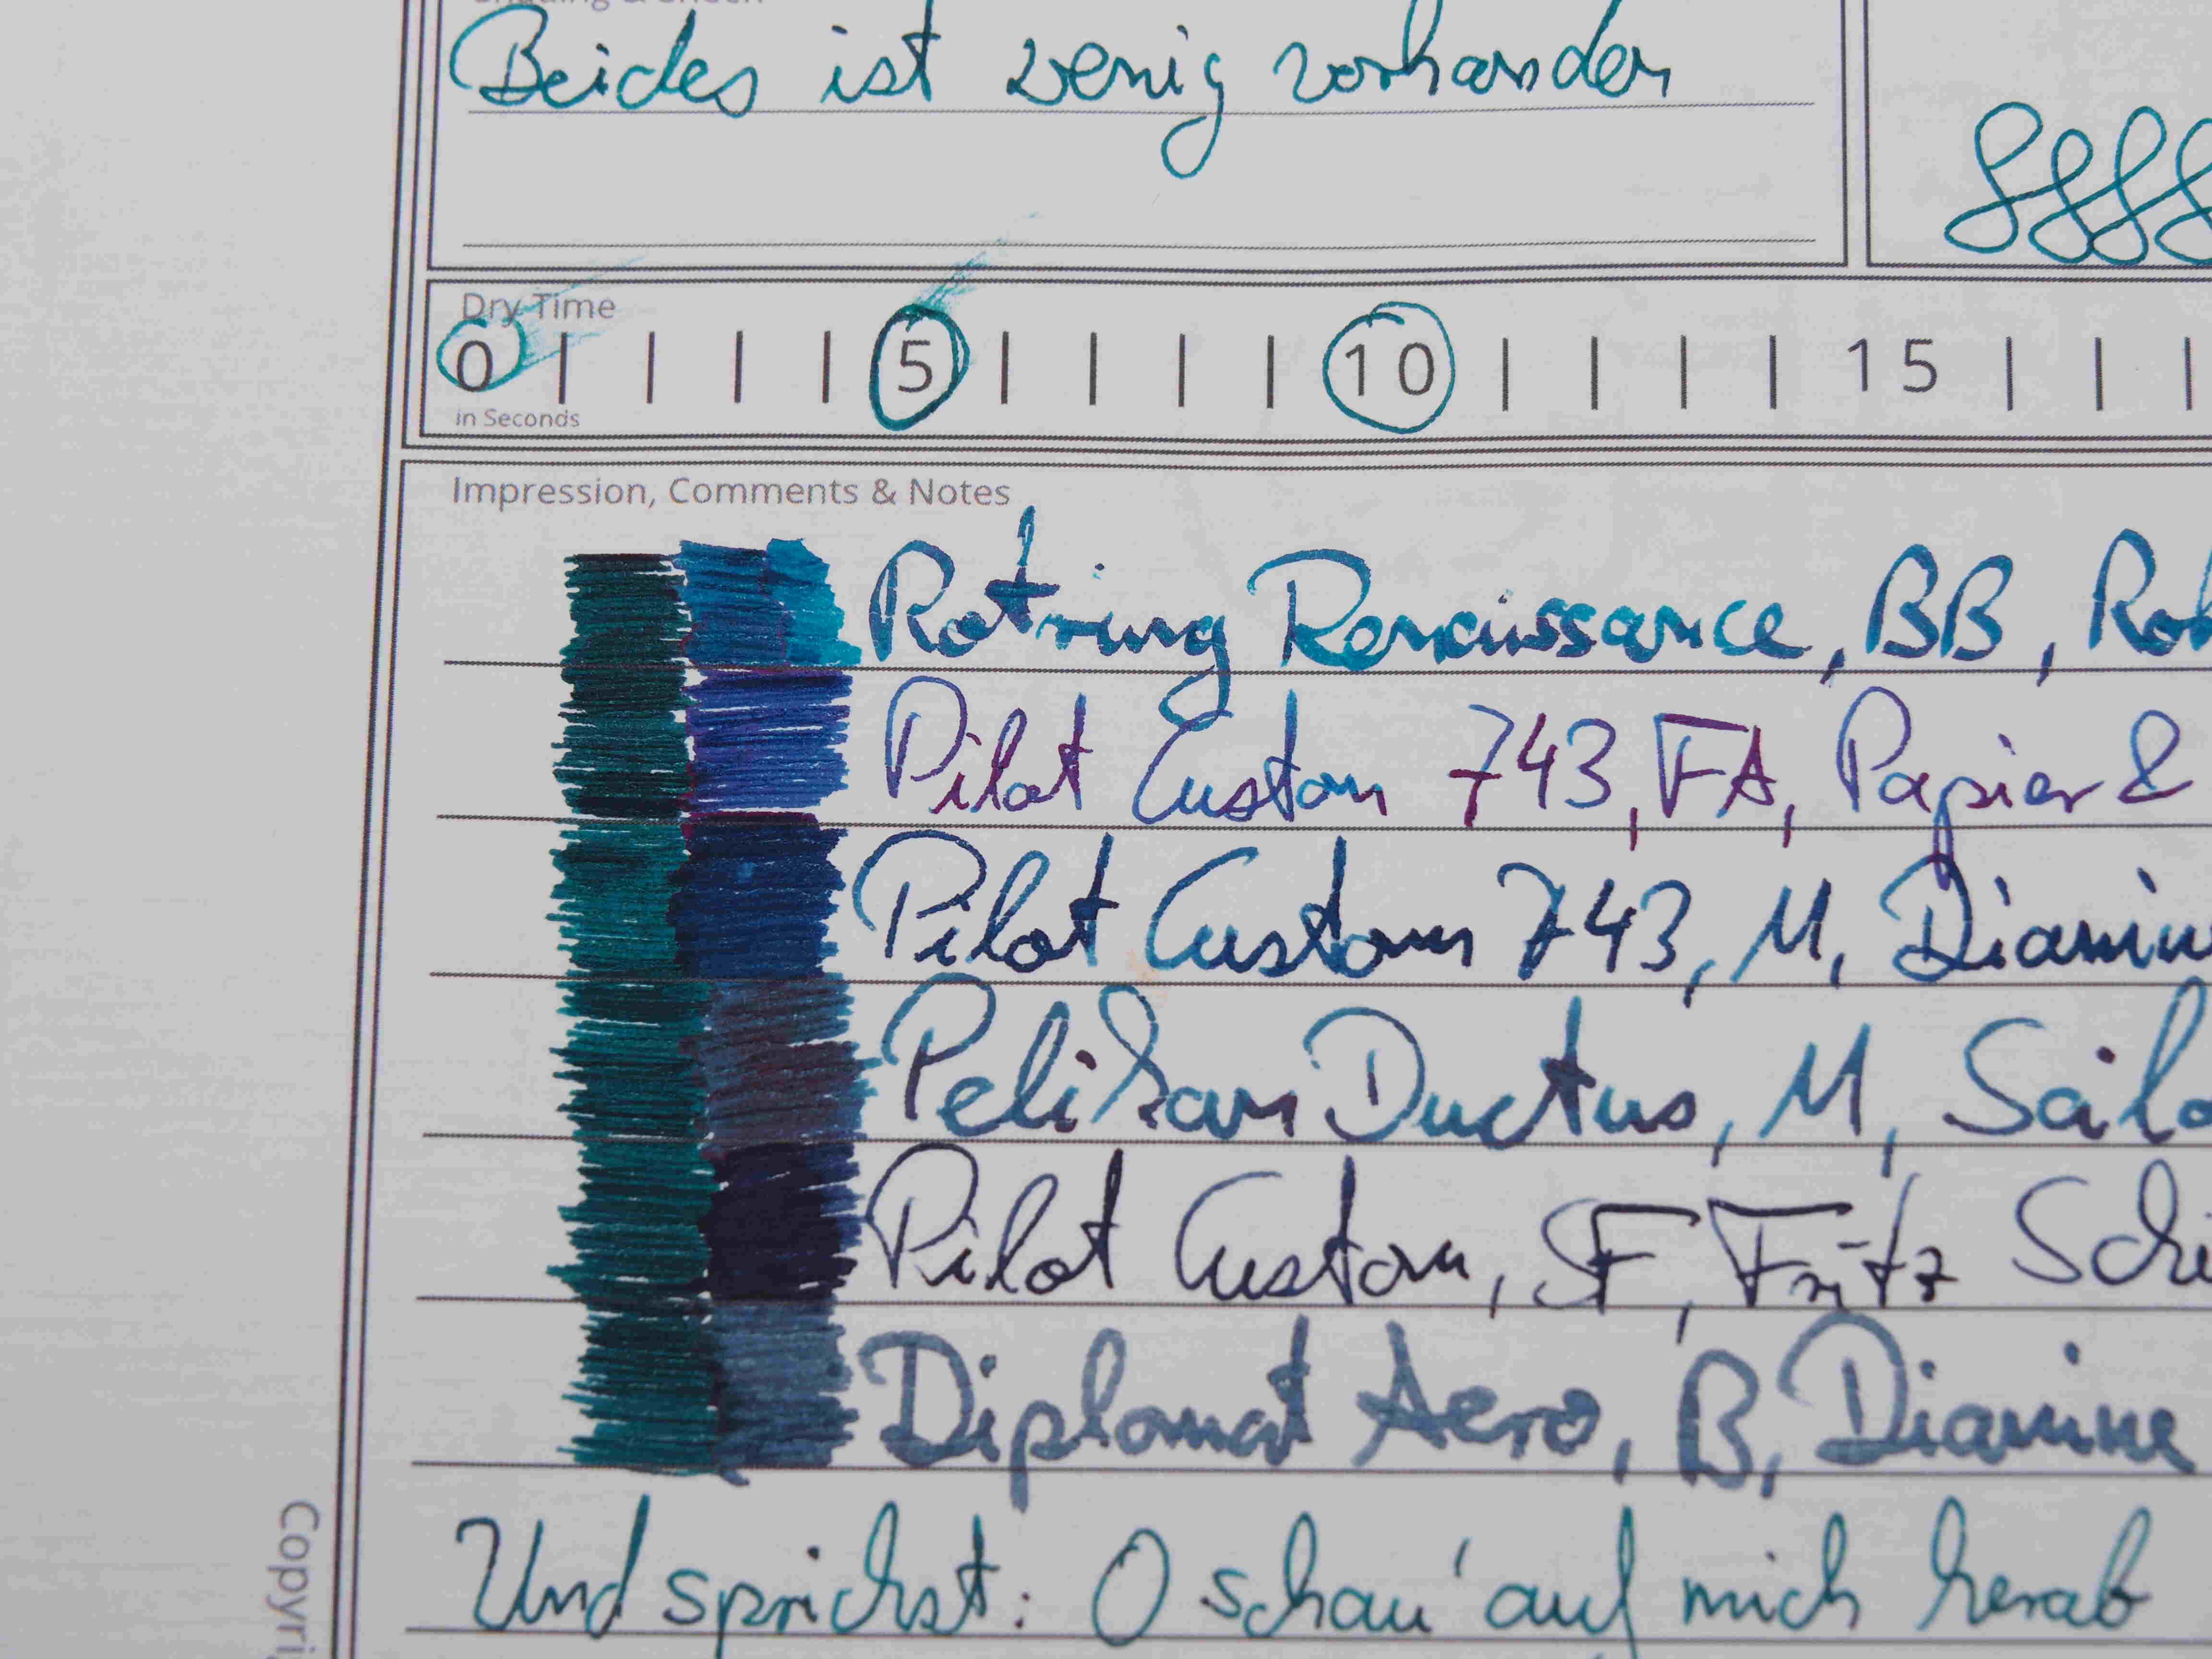 Beides ist wenig vorhanden
Dry Time
0 5 10 15
in Seconds
Impression, Comments & Notes
Rotring Renaissance, BB, Roh
Pilot Custom 743, FA, Papier &
Pilot Custom 743, M, Diamin
Pelikan Ductus, M, Sailo
Pilot Custom, SF, Fritz Schi
Diplomat Aero, B, Diamine
Und sprichst: O schau' auf mich herab
Copyri